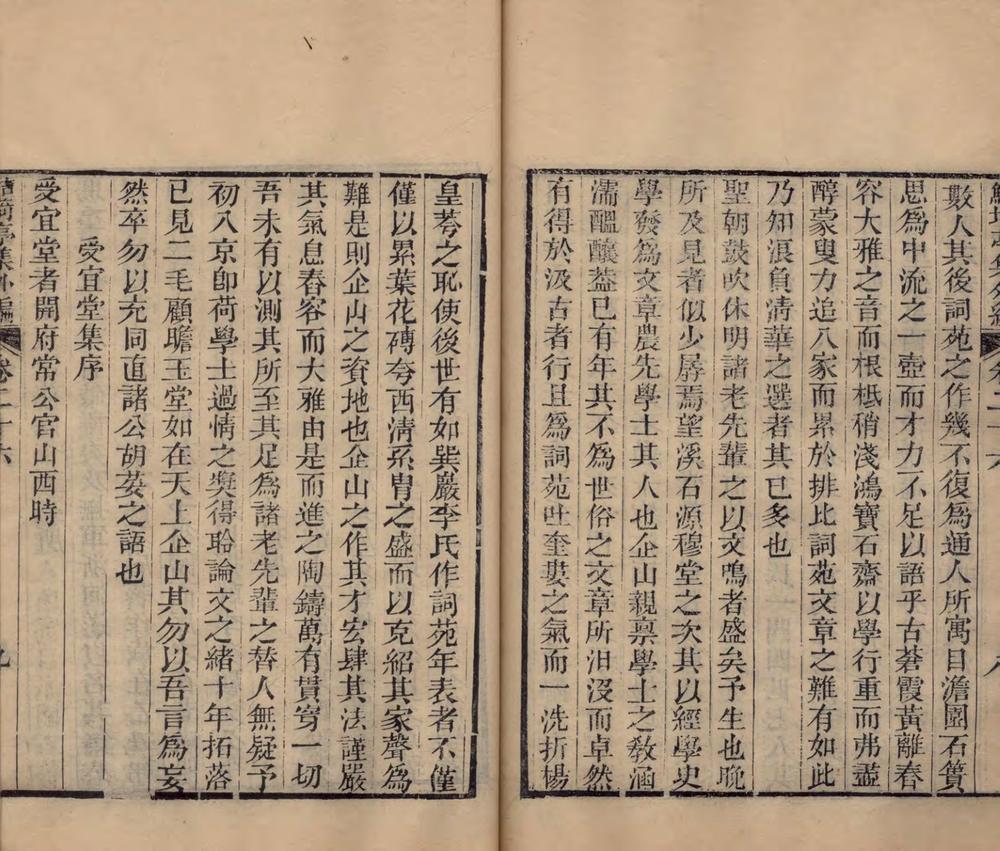 數人其後詞苑之作幾不復爲通人所寓目澹園石簣
思爲中流之一壺而才力不足以語乎古蒼霞黃離春
容大雅之音而根柢稍淺鴻寶石齋以學行重而弗盡
醇蒙叟力追八家而累於排比詞苑文章之難有如此
乃知浪負淸華之選者其已多也
聖朝鼓吹休明諸老先輩之以文鳴者盛矣予生也晚
所及見者似少孱焉望溪石源穆堂之次其以經學史
學發爲文章農先學士其人也企山親稟學士之敎涵
濡醞釀葢已有年其不爲世俗之文章所汨沒而卓然
有得於汲古者行且爲詞苑吐奎婁之氣而一洗折楊
皇荂之恥使後世有如巽巖李氏作詞苑年表者不僅
僅以累葉花磚夸西淸系胄之盛而以克紹其家聲爲
難是則企山之資地也企山之作其才宏肆其法謹嚴
其氣息舂容而大雅由是而進之陶鑄萬有貫穿一切
吾未有以測其所至其足爲諸老先輩之替人無疑予
初入京卽荷學士過情之獎得聆論文之緒十年拓落
已見二毛顧瞻玉堂如在天上企山其勿以吾言爲妄
然卒勿以充同直諸公胡荽之語也
受宜堂集序
受宜堂者開府常公官山西時
鮚埼亭集外編 卷二十六 九